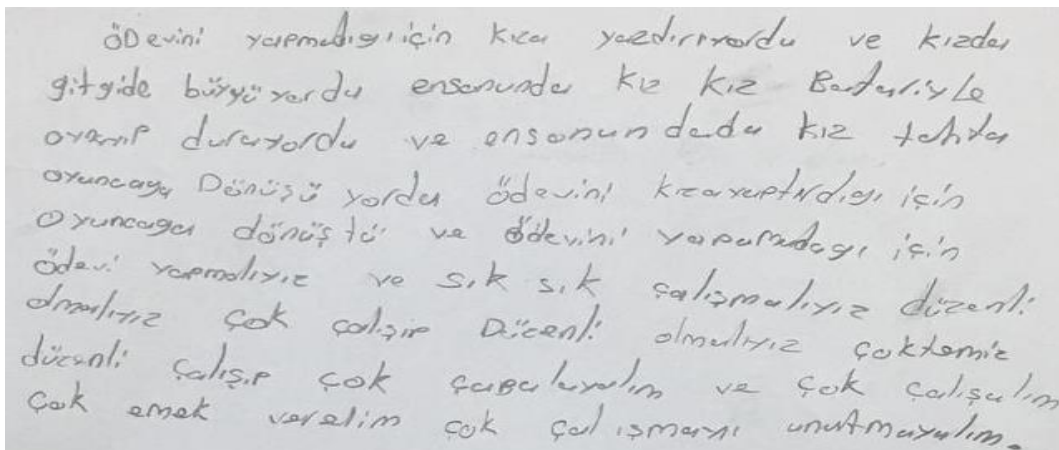 ödevini yapmadığı için kıza yazdırıyordu ve kızda
gitgide büyüyordu ensonunda kız kız Batariyle
oynayıp duruyordu ve ensonundada kız tahta
oyuncağa Dönüşüyordu ödevini kıza yaptırdığı için
Oyuncağa dönüştü ve ödevini yapamadağı için
ödevi yapmalıyız ve sık sık çalışmalıyız düzenli
olmalıyız çok çalışıp Düzenli olmalıyız çoktemiz
düzenli çalışıp çok çabalıyalım ve çok çalışalım
çok emek verelim çok çalışmayı unutmayalım.